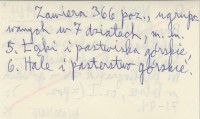 Zawiera 366 poz., ugrupo
wanych w 7 działach, m. in.
5. Łąki i pastwiska górskie,
6. Hale i pasterstwo górskie.